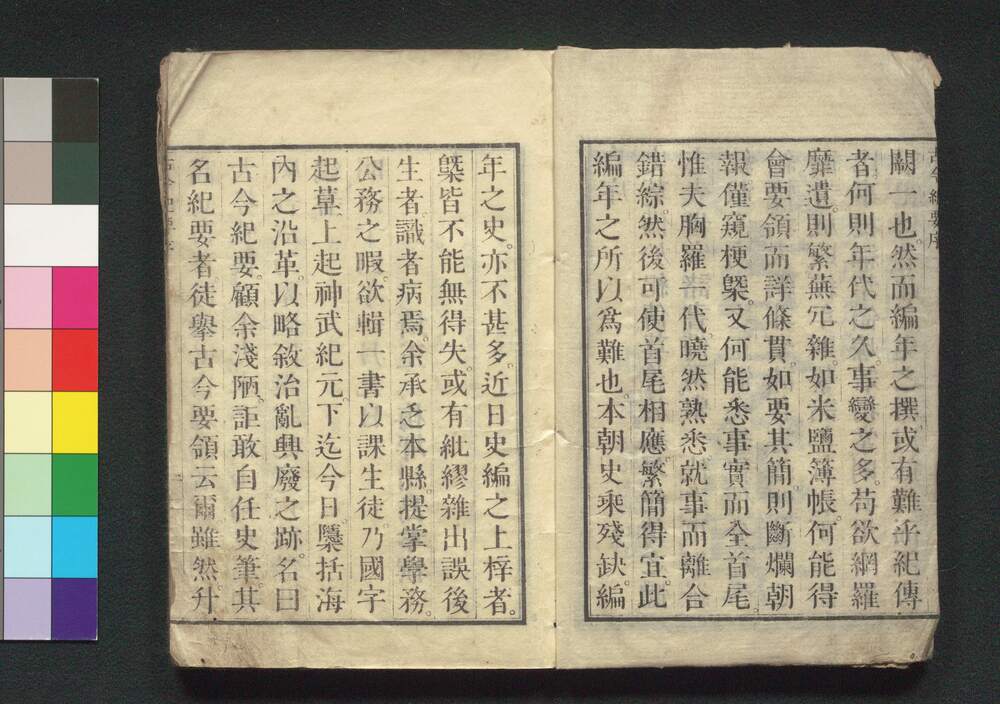 闕一也。然而編年之撰或有難乎紀傳
者何則年代之久事變之多。苟欲網羅
靡遺。則繁蕪冗雜。如米鹽簿帳。何能得
會要領而詳條貫。如要其簡。則斷爛朝
報僅窺梗槩。又何能悉事實而全首尾。
惟夫胸羅一代。曉然熟悉就事而離合
錯綜。然後可使首尾相應。繁簡得宜。此
編年之所以爲難也。本朝史乘殘缺。編
年之史。亦不甚多。近日史編之上梓者。
槩皆不能無得失。或有紕繆雜出誤後
生者識者病焉。余承乏本縣。提掌學務。
公務之暇欲輯一書以課生徒。乃國字
起草。上起神武紀元。下迄今日。檃括海
內之沿革。以略敘治亂興廢之跡。名曰
古今紀要。顧余淺陋。詎敢自任史筆。其
名紀要者徒擧古今要領云爾雖然升